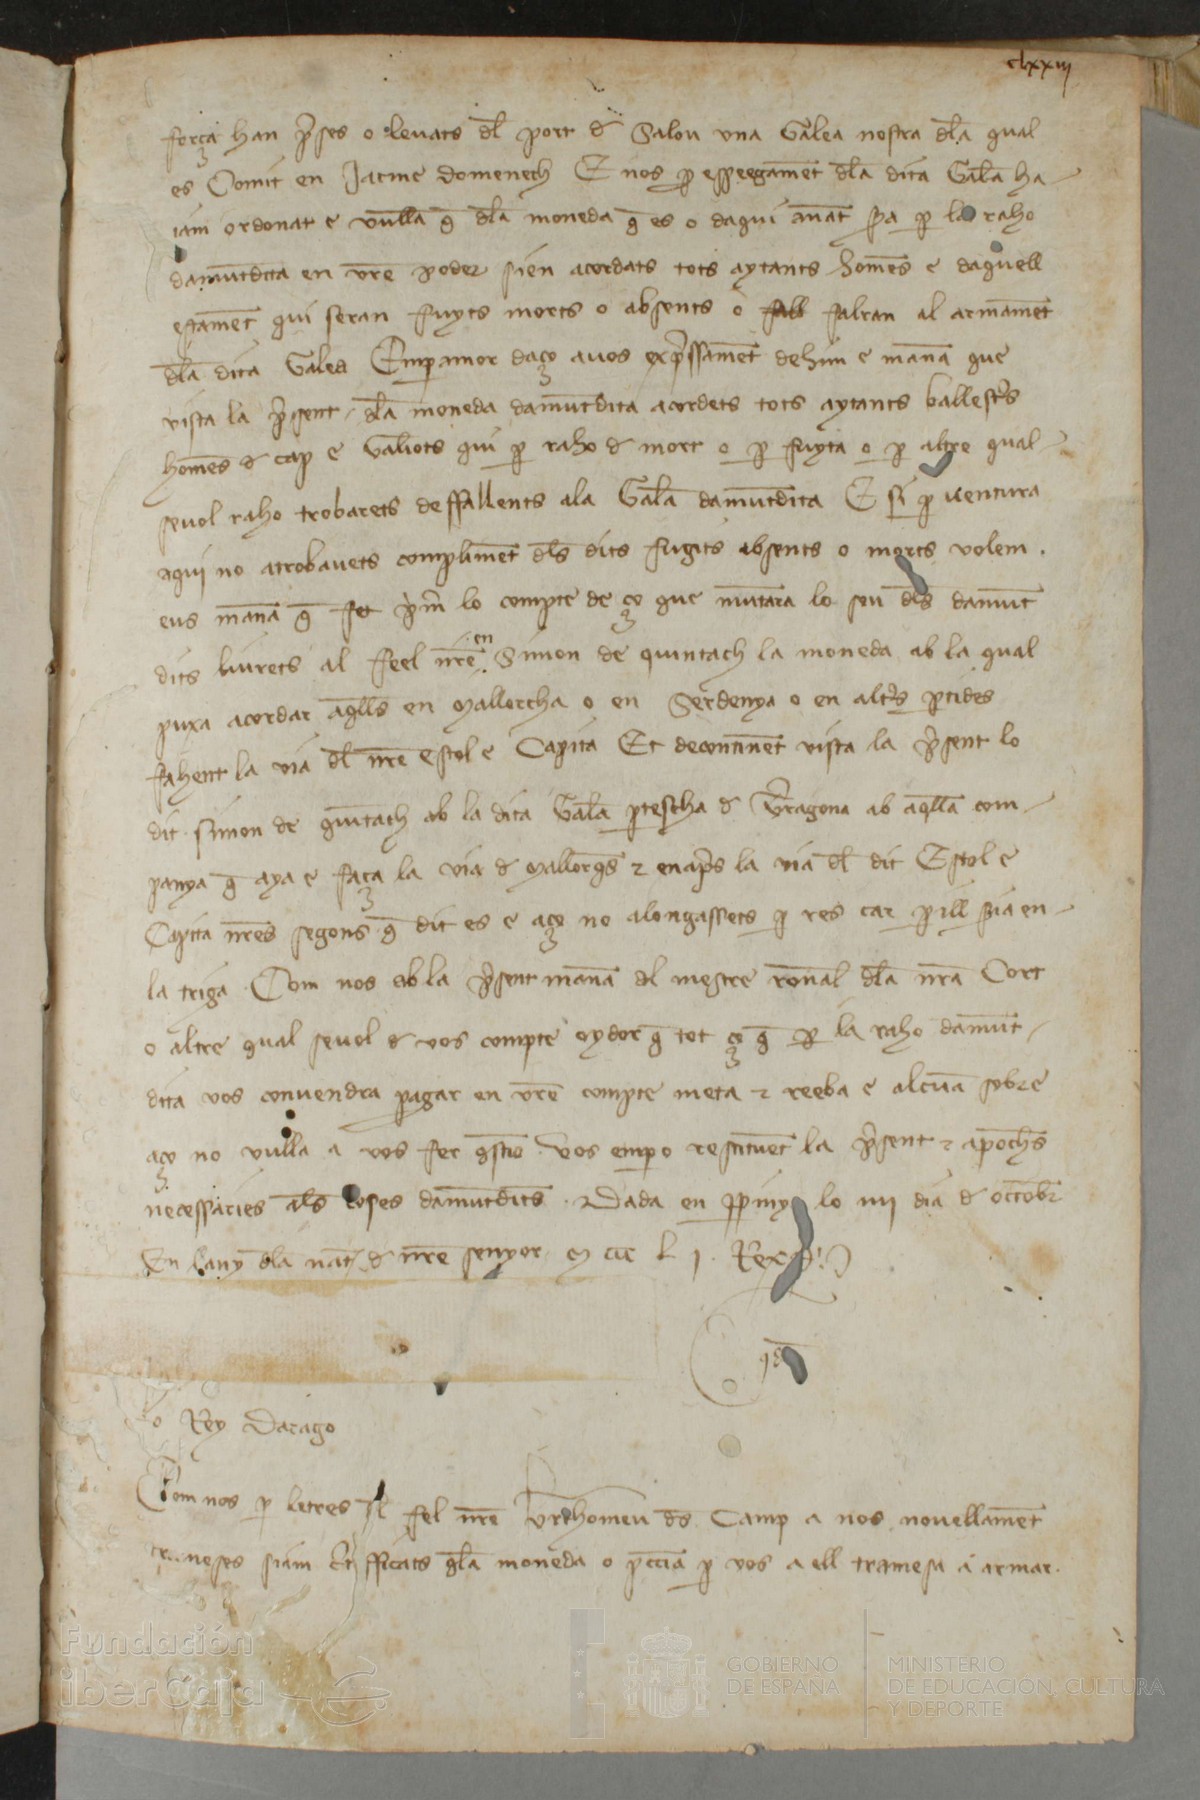 clxxiij
força han p̄ses o levats dl̄ port d̄ Salou una Galea nostra dl̄a qual
es Comit en Jacme Domenech E nos p̱ espeegam̄et dl̄a dita Gal̄a ha-
iam ordonat e vull̄a q̄ dl̄a moneda q̄ es o daqui avāt sia p̱ la raho
damūtdita en vr̄e poder sien acordats tots aytants homēs e daquell
estam̄et qui seran fuyts morts o absents o fall falran al armam̄et
dl̄a dita Galea Emp̱amor daço avos exp̄ssam̄et dehim e manā que
vista la p̄sent dl̄a moneda damūtdita acordets tots aytants ballest̄s
homēs d̄ cap e Galiots qui p̱ raho d̄ mort o p̱ fuyta o p̱ altre qual-
sevol raho trobarets deffallents ala Gal̄a damūtdita E si p̱ ventura
aqui no atrobavets complim̄et dl̄s dits fugits absents o morts volem
eus manā q̄ fet p̄m̄ lo compte de ço que mūtara lo sou dl̄s damūt
dits liurets al feel nr̄e en Simon de quintach la moneda ab la qual
puxa acordar aq̄lls en Mallorcha o en Serdenya o en alt̄s p̱tides
fahent la via dl̄ nr̄e estol e Capita Et decontin̄et vista la p̄sent lo
dit simon de guītach ab la dita Gal̄a p̱tescha d̄ T̄ragona ab aq̄lla com-
panya q̄ aya e faça la via d̄ Mallorq̄s & enap̄s la via dl̄ dit Estol e
Capita nr̄es segons q̄ dit es e aço no alongassets p̱ res car p̱ill sia en
la triga Com nos ab la p̄sent manā al mestre ronāl dl̄a nr̄a Cort
o altre qual sevol d̄ vos compte oydor q̄ tot ço q̄ p̱ la raho damūt-
dita vos convendra pagar en vr̄e compte meta & reeba e alcūa sobre
aço no vulla a vos fer q̄stio vos emp̱o restitūet la p̄sent & apoch̄s
necessaries als̄ coses damūtdits Dada en p̱pinya lo iiij dia d̄ octobr̄
En lany dl̄a nat̄ d̄ nr̄e senyor M ccc L j. Rex P.
Lo Rey Darago
Com nos p̱ letres dl̄ fel nr̄e Berthomeu d̄s Camp a nos novellam̄et
trameses siam c̄tifficats q̄ la moneda o p̱ccia p̱ vos a ell tramesa a armar
Fundación
iberCaja
GOBIERNO
DE ESPAÑA
MINISTERIO
DE EDUCACIÓN, CULTURA
Y DEPORTE